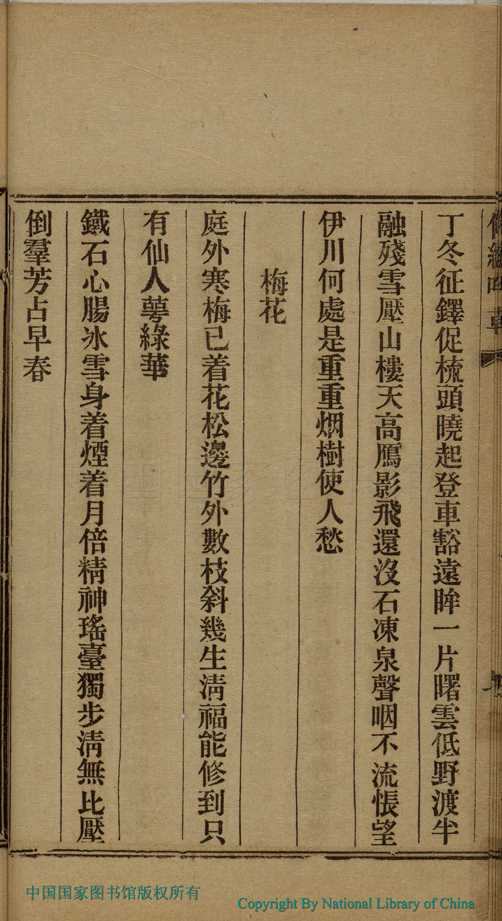 丁冬征鐸促梳頭曉起登車豁遠眸一片曙雲低野渡半
融殘雪壓山樓天高鴈影飛還沒石凍泉聲咽不流悵望
伊川何處是重重烟樹使人愁
梅花
庭外寒梅已着花松邊竹外數枝斜幾生淸福能修到只
有仙人蕚綠華
鐵石心腸冰雪身着煙着月倍精神瑤臺獨步淸無比壓
倒羣芳占早春
中国国家图书馆版权所有
Copyright By National Library of China